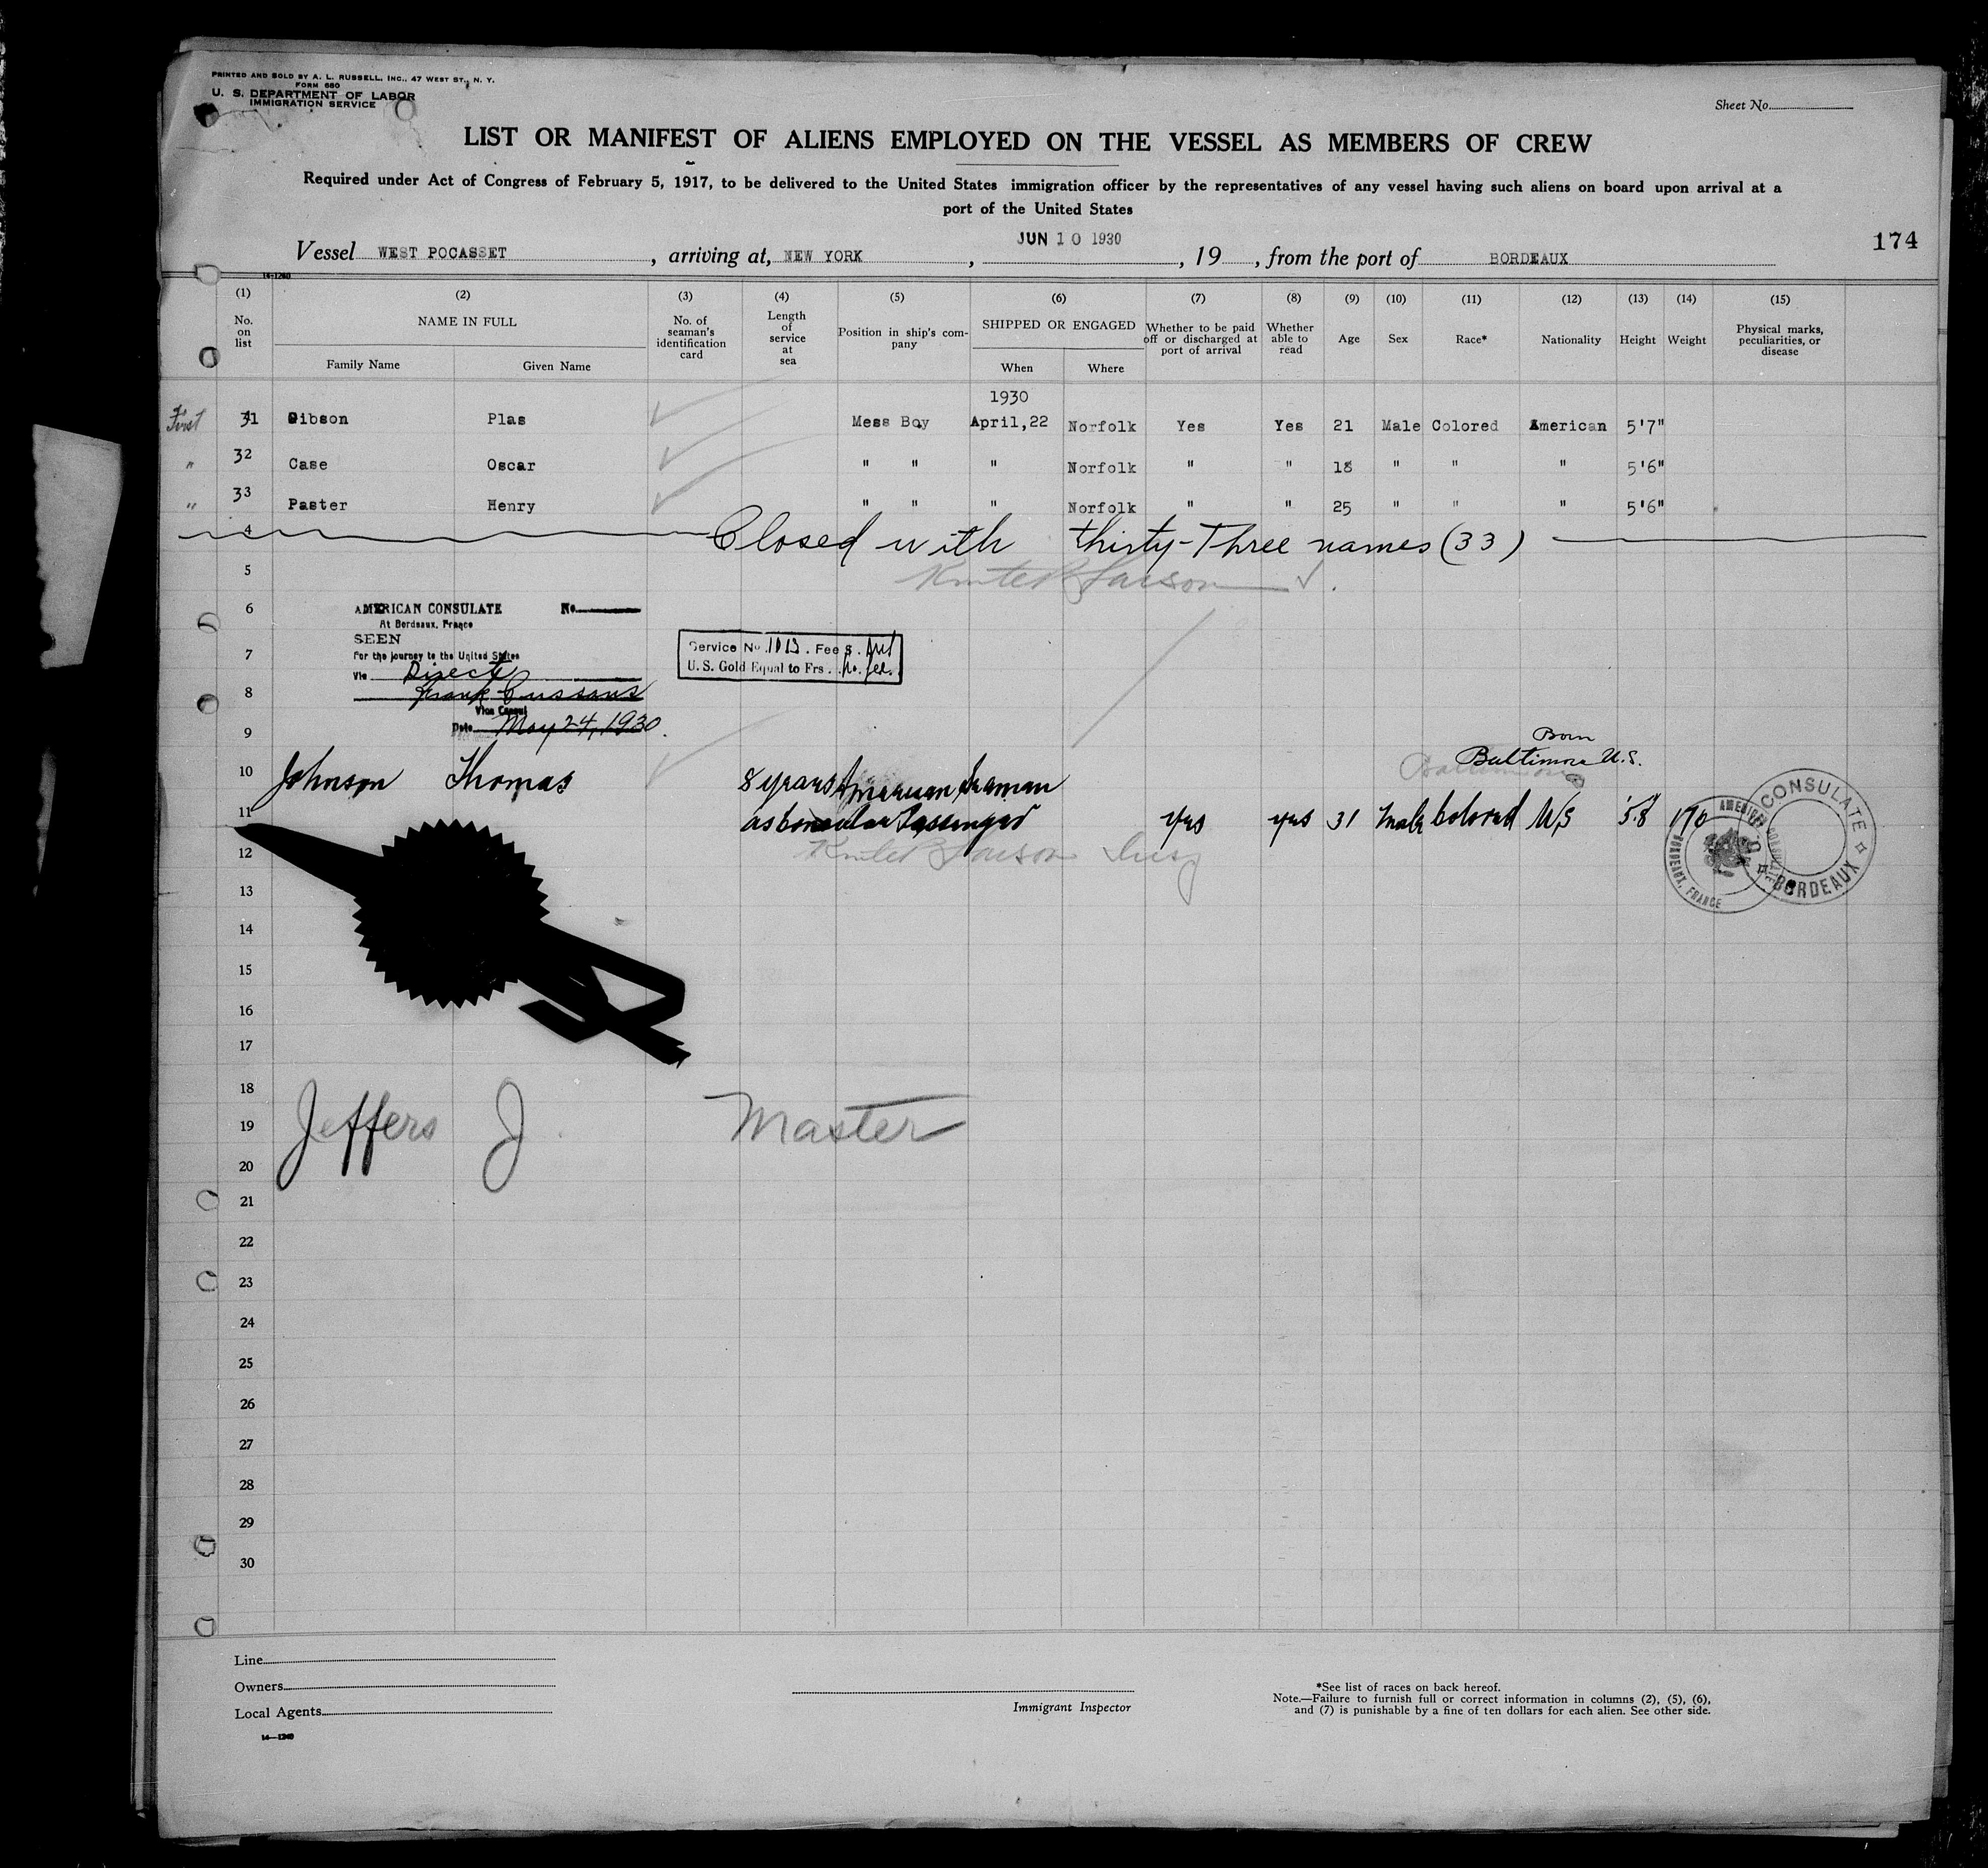 PRINTED AND SOLD BY A. L. RUSSELL, INC., 47 WEST ST., N. Y.
FORM 680
U. S. DEPARTMENT OF LABOR
IMMIGRATION SERVICE
Sheet No.
LIST OR MANIFEST OF ALIENS EMPLOYED ON THE VESSEL AS MEMBERS OF CREW
Required under Act of Congress of February 5, 1917, to be delivered to the United States immigration officer by the representatives of any vessel having such aliens on board upon arrival at a
port of the United States
Vessel WEST POCASSET, arriving at, NEW YORK, JUN 10 1930, 19, from the port of BORDEAUX
174
14-1240
(1) (2) (3) (4) (5) (6) (7) (8) (9) (10) (11) (12) (13) (14) (15)
No. on list
NAME IN FULL
Family Name Given Name
No. of seaman's identification card
Length of service at sea
Position in ship's company
SHIPPED OR ENGAGED
When Where
Whether to be paid off or discharged at port of arrival
Whether able to read
Age
Sex
Race*
Nationality
Height
Weight
Physical marks, peculiarities, or disease
1930
First 31 Gibson Plas Mess Boy April,22 Norfolk Yes Yes 21 Male Colored American 5'7"
" 32 Case Oscar " " " Norfolk " " 18 " " " 5'6"
" 33 Paster Henry " " " Norfolk " " 25 " " " 5'6"
4 Closed with thirty-Three names (33)
5
6
AMERICAN CONSULATE No.
At Bordeaux, France
SEEN
For the journey to the United States
Via Direct
Vice Consul
Date May 24, 1930.
Service No. Fee $.
U. S. Gold Equal to Frs. no fee.
7
8
9
Born
Baltimore U.S.
10 Johnson Thomas 8 years American Seaman
11 as Consular Passenger Yes yes 31 Male Colored US 5.8 170
AMERICAN CONSULATE BORDEAUX, FRANCE
CONSULATE BORDEAUX
12
13
14
15
16
17
18
19 Jeffers J Master
20
21
22
23
24
25
26
27
28
29
30
Line
Owners
Local Agents
14-1240
Immigrant Inspector
*See list of races on back hereof.
Note.—Failure to furnish full or correct information in columns (2), (5), (6),
and (7) is punishable by a fine of ten dollars for each alien. See other side.